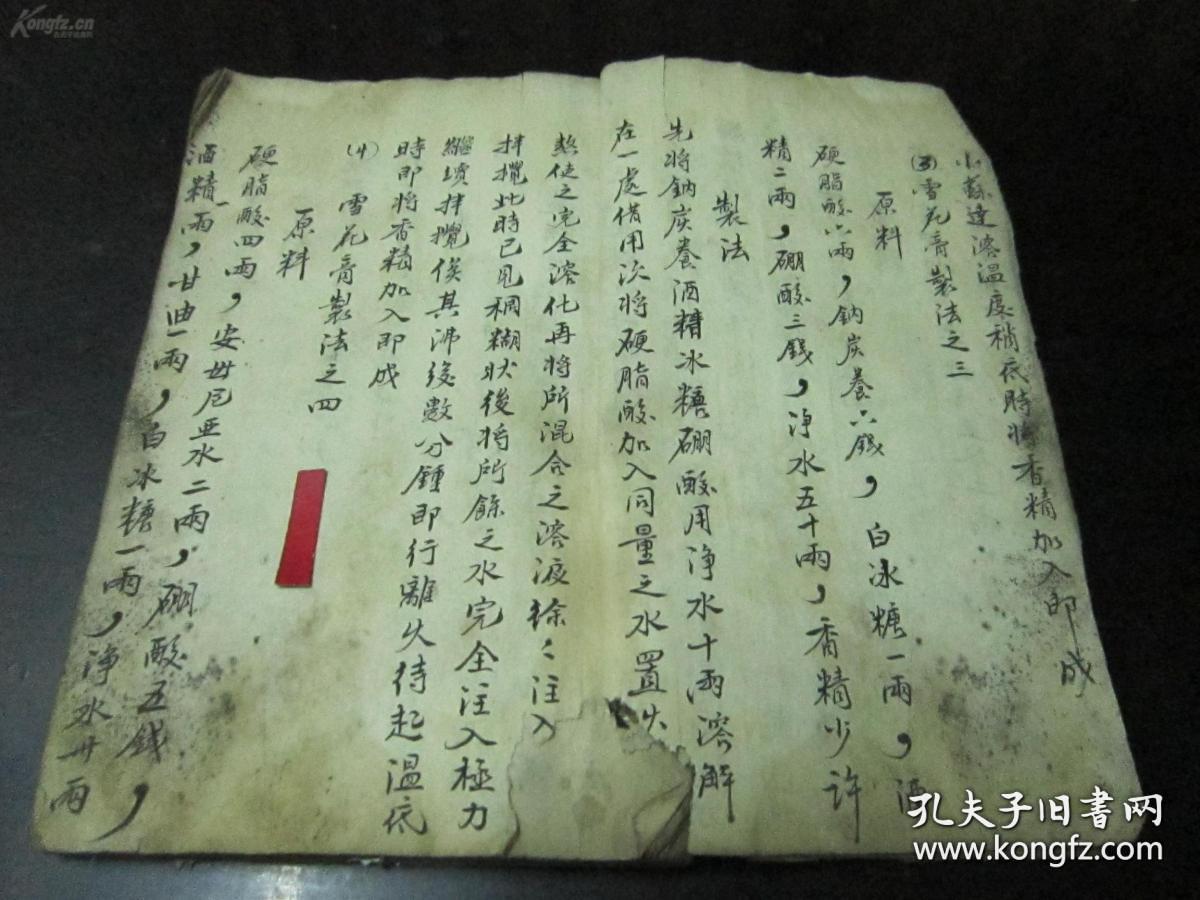 小蘇達溶温度稍底時將香精加入即成
(3)雪花膏製法之三
原料
硬脂酸六兩，鈉炭養六錢，白冰糖一兩，酒
精二兩，硼酸三錢，净水五十兩，香精少許
製法
先將鈉炭養酒精冰糖硼酸用净水十兩溶解
在一處借用次將硬脂酸加入同量之水置火
熱使之完全溶化再將所混合之溶液徐〻注入
拌攪此時已見稠糊狀後將所餘之水完全注入極力
繼續拌攪俟其沸後數分鍾即行離火待起温底
時即將香精加入即成
(4)雪花膏製法之四
原料
硬脂酸四兩，安毋尼亚水二兩，硼酸五錢，
酒精一兩，甘油一兩，白冰糖一兩，净水卅兩
Kongfz.cn
孔夫子旧書网
www.kongfz.com